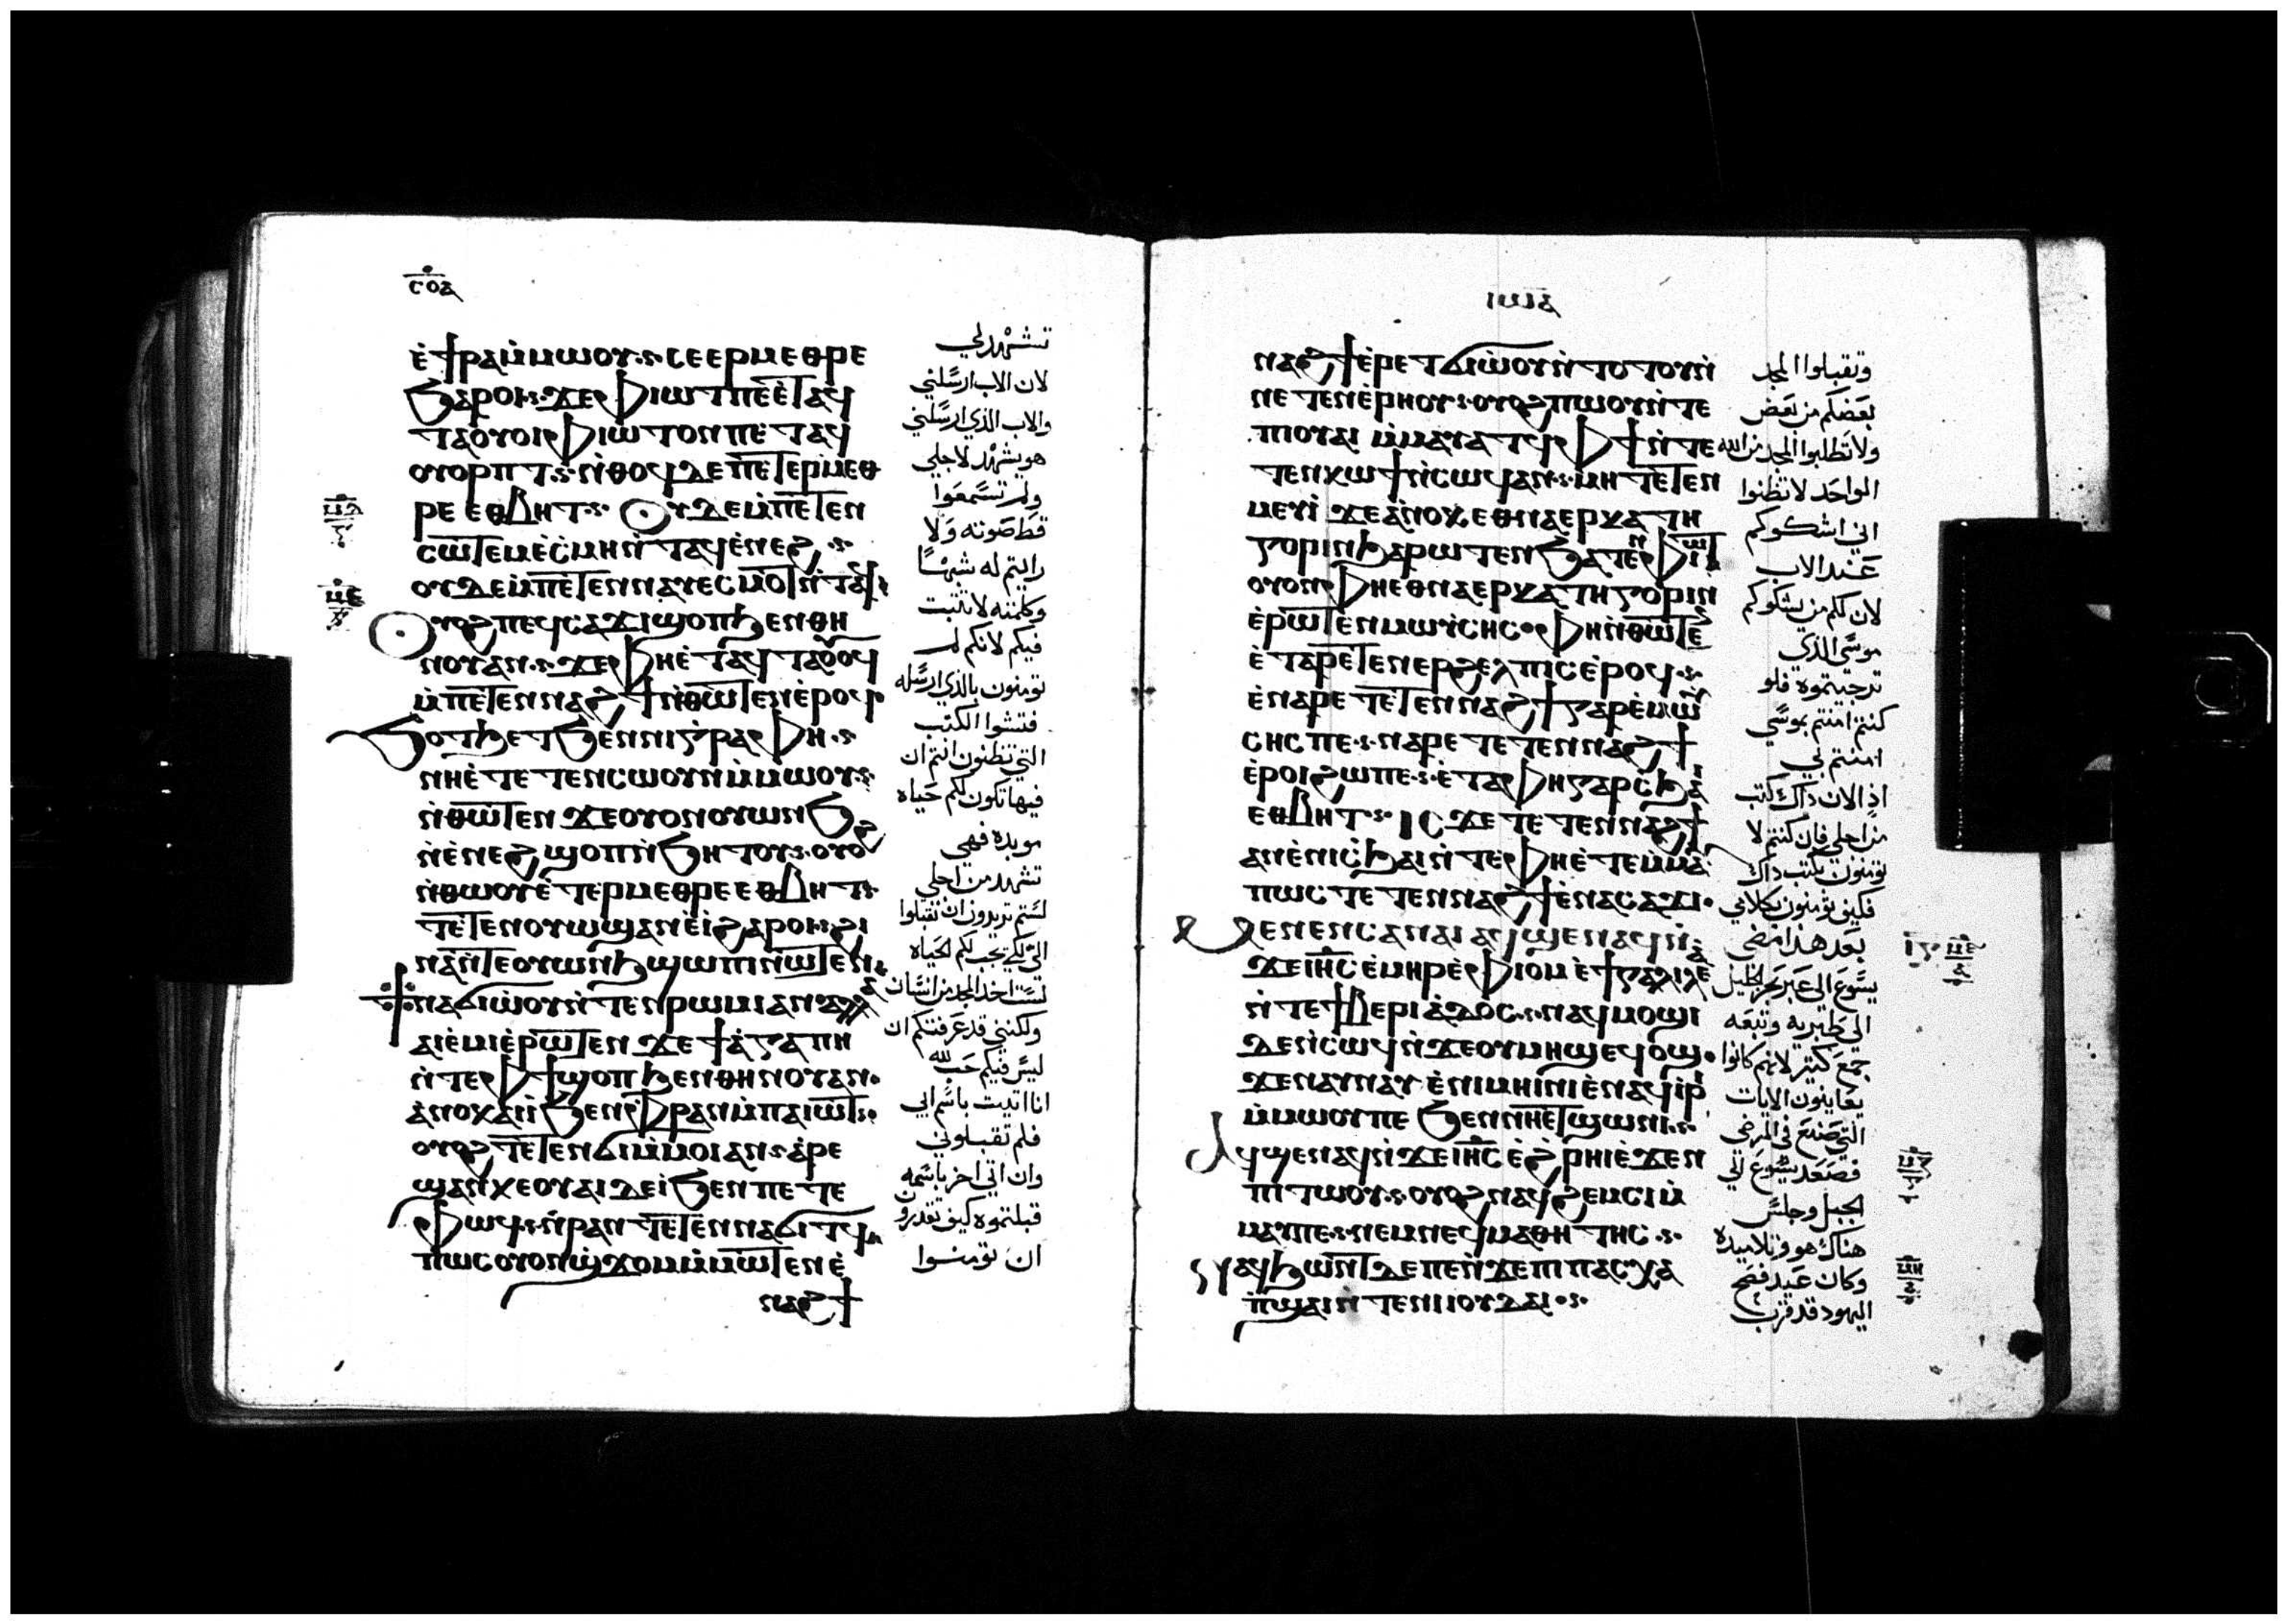 ⲥⲟⲁ
ⲉ̀ϯⲣⲁⲙ̀ⲙⲱⲟⲩ·ⲥⲉⲉⲣⲙⲉⲑⲣⲉ
ϧⲁⲣⲟⲓ·ϫⲉⲫⲓⲱⲧⲡⲉⲉ̀ⲧⲁϥ
ⲧⲁⲟⲩⲟⲓⲫⲓⲱⲧⲟⲛⲡⲉⲧⲁϥ
ⲟⲩⲟⲣⲡⲧ·ⲛ̀ⲑⲟϥⲇⲉⲡⲉⲧⲉⲣⲙⲉⲑ
ⲣⲉ ⲉⲑⲃⲏⲧ· ⲟⲩⲇⲉⲙ̀ⲡⲉⲧⲉⲛ
ⲥⲱⲧⲉⲙⲉ̀ⲥ̀ⲙⲏⲛ̀ⲧⲁϥⲉ̀ⲛⲉϩ·
ⲟⲩⲇⲉⲙ̀ⲡⲉⲧⲉⲛⲛⲁⲩⲉⲥⲙⲟⲧⲛ̀ⲧⲁϥ·
ⲟⲩⲟϩⲡⲉϥⲥⲁϫⲓϣⲟⲡϧⲉⲛⲑⲏ
ⲛⲟⲩⲁⲛ·ϫⲉⲫⲏⲉ̀ⲧⲁϥⲧⲁⲟⲩⲟϥ
ⲙ̀ⲡⲉⲧⲉⲛⲛⲁϩϯⲛ̀ⲑⲱⲧⲉⲛⲉ̀ⲣⲟϥ
ϧⲟⲧϧⲉⲧϧⲉⲛⲛⲓⲅⲣⲁⲫⲏ·
ⲛⲏⲉ̀ⲧⲉⲧⲉⲛⲥⲱⲟⲩⲛⲙ̀ⲙⲱⲟⲩ·
ⲛ̀ⲑⲱⲧⲉⲛ ϫⲉⲟⲩⲟⲛⲟⲩⲱⲛϧ
ⲛ̀ⲉ̀ⲛⲉϩϣⲟⲡⲛ̀ϧⲏⲧⲟⲩ·ⲟⲩⲟϩ
ⲛ̀ⲑⲱⲟⲩⲉ̀ⲧⲉⲣⲙⲉⲑⲣⲉⲉⲑⲃⲏⲧ·
ⲧⲉⲧⲉⲛⲟⲩⲱϣⲁⲛⲉ̀ⲓ̀ϩⲁⲣⲟⲓ·ϩⲓ
ⲛⲁⲛ̀ⲧⲉⲟⲩⲱⲛϧϣⲱⲡⲓⲛⲱⲧⲉⲛ·
ⲛⲁϭⲓⲱ̀ⲟⲩⲛ̀ⲧⲉⲛⲣⲱⲙⲓⲁⲛ·ⲁⲗⲗⲁ
ⲁⲓⲉ̀ⲙⲓⲉ̀ⲣⲱⲧⲉⲛ ϫⲉϯⲁ̀ⲅⲁⲡⲏ
ⲛ̀ⲧⲉⲫϯϣⲟⲡϧⲉⲛⲑⲏⲛⲟⲩⲁⲛ·
ⲁ̀ⲛⲟⲕⲁⲓⲓ̀ϧⲉⲛⲫⲣⲁⲛⲙ̀ⲡⲁⲓⲱⲧ·
ⲟⲩⲟϩⲧⲉⲧⲉⲛϭⲓⲙ̀ⲙⲟⲓⲁⲛ·ⲁ̀ⲣⲉ
ϣⲁⲛⲕⲉⲟⲩⲁⲓⲇⲉⲓ̀ϧⲉⲛⲡⲉⲧⲉ
ⲫⲱϥ·ⲛ̀ⲣⲁⲛ ⲧⲉⲧⲉⲛⲛⲁϭⲓⲧϥ·
ⲡⲱⲥⲟⲩⲟⲛϣ̀ϫⲟⲙⲙ̀ⲙⲱⲧⲉⲛⲉ̀
ⲛⲁϩϯ
تشهد لي
لان الاب ارسلني
والاب الذي ارسلني
هو يشهد لاجلي
ولم تسمعوا
قط صوته ولا
رايتم له شبها
وكلمته لا تثبت
فيكم لانكم لم
تومنون بالذي ارسله
فتشوا الكتب
التي تظنون انتم ان
فيها تكون لكم حياه
موبده فهي
تشهد من اجلي
لستم تريدون ان تقبلوا
الي لكي تجب لكم الحياه
لست اخد المجد من انسان
ولكنني قد عرفتكم ان
ليس فيكم حب لله
انا اتيت باسم ابي
فلم تقبلوني
وان اتي اخر باسمه
قبلتموه كيف تقدرو
ان تومنوا
ⲓⲱⲁ
ⲛⲁϩϯⲉ̀ⲣⲉⲧϭⲓⲱ̀ⲟⲩⲛ̀ⲧⲟⲧⲟⲩⲛ̀
ⲛⲉⲧⲉⲛⲉ̀ⲣⲏⲟⲩ·ⲟⲩⲟϩⲡⲱⲟⲩⲛ̀ⲧⲉ
ⲡⲓⲟⲩⲁⲓ ⲙ̀ⲙⲁⲩⲁⲧϥⲫϯⲛ̀ⲧⲉ
ⲧⲉⲛⲕⲱϯⲛ̀ⲥⲱϥⲁⲛ·ⲙⲏⲧⲉⲧⲉⲛ
ⲙⲉⲩⲓ ϫⲉⲁ̀ⲛⲟⲕⲉⲑⲛⲁⲉⲣⲕⲁⲧⲏ
ⲅⲟⲣⲓⲛϧⲁⲣⲱⲧⲉⲛϧⲁⲧⲉⲛⲫⲓⲱⲧ
ⲟⲩⲟⲛⲫⲏⲉⲑⲛⲁⲉⲣⲕⲁⲧⲏⲅⲟⲣⲓⲛ
ⲉ̀ⲣⲱⲧⲉⲛⲙⲱⲩ̀ⲥⲏⲥ·ⲫⲏⲛ̀ⲑⲱⲧⲉ
ⲉ̀ⲧⲁⲣⲉⲧⲉⲛⲉⲣϩⲉⲗⲡⲓⲥⲉ̀ⲣⲟϥ·
ⲉ̀ⲛⲁⲣⲉⲧⲉⲧⲉⲛⲛⲁϩϯⲅⲁⲣⲉ̀ⲙⲱⲩ̀
ⲥⲏⲥⲡⲉ·ⲛⲁⲣⲉⲧⲉⲧⲉⲛⲛⲁϩϯ
ⲉ̀ⲣⲟⲓϩⲱⲡⲉ·ⲉ̀ⲧⲁⲫⲏⲅⲁⲣⲥ̀ϧⲁⲓ
ⲉⲑⲃⲏⲧ·ⲓⲥϫⲉⲧⲉⲧⲉⲛⲛⲁϩϯ
ⲁⲛⲉ̀ⲛⲓⲥ̀ϧⲁⲓⲛ̀ⲧⲉⲫⲏⲉ̀ⲧⲉⲙ̀ⲙⲁ
ⲡⲱⲥⲧⲉⲧⲉⲛⲛⲁϩϯⲉ̀ⲛⲁⲥⲁϫⲓ·
ⲙⲉⲛⲉⲛⲥⲁⲛⲁⲓⲁϥϣⲉⲛⲁϥⲛ̀
ϫⲉⲓⲏⲥⲉ̀ⲙⲏⲣⲉ̀ⲫⲓⲟⲙⲉ̀ϯⲅⲁⲗⲓⲗⲉ
ⲛ̀ⲧⲉϯⲃⲉⲣⲓⲁ̀ⲇⲟⲥ·ⲛⲁϥⲙⲟϣⲓ
ⲇⲉⲛ̀ⲥⲱϥⲛ̀ϫⲉⲟⲩⲙⲏϣⲉϥⲟ̀ϣ·
ϫⲉⲛⲁⲩⲛⲁⲩ ⲉ̀ⲛⲓⲙⲏⲓⲛⲓⲉ̀ⲛⲁϥⲓⲣⲓ
ⲙ̀ⲙⲱⲟⲩⲡⲉ ϧⲉⲛⲛⲏⲉⲧϣⲱⲛⲓ·
ⲁϥϣⲉⲛⲁϥⲛ̀ϫⲉⲓⲏⲥ ⲉ̀ϩ̀ⲣⲏⲓⲉ̀ϫⲉⲛ
ⲡⲓⲧⲱⲟⲩ·ⲟⲩⲟϩⲛⲁϥϩⲉⲙⲥⲓⲙ̀
ⲙⲁⲩⲡⲉ·ⲛⲉⲙⲛⲉϥⲙⲁⲑⲏⲧⲏⲥ·
ⲛⲁϥϧⲱⲛⲧⲇⲉⲡⲉⲛ̀ϫⲉⲡⲓⲡⲁⲥⲭⲁ
ⲡ̀ϣⲁⲓⲛ̀ⲧⲉⲛⲓⲓⲟⲩⲇⲁⲓ·
وتقبلوا المجد
بعضكم من بعض
ولا تطلبوا المجد من الله
الواحد لا تظنوا
اني اشكوكم
عند الاب
لان لكم من يشكوكم
موسي الذي
ترجيتموه فلو
كنتم امنتم بموسي
امنتم بي
اذ الان داك كتب
من اجلي فان كنتم لا
تومنون بكتب داك
فكيف تومنون بكلامي
بعد هذا مضي
يسوع الي عبر بحر الجليل
الي طبريه وتبعه
جمع كثير لانهم كانوا
يعاينون الايات
التي صنع في المرضي
فصعد يسوع الي
الجبل وجلس
هناك هو وتلاميده
وكان عيد فصح
اليهود قد قرب